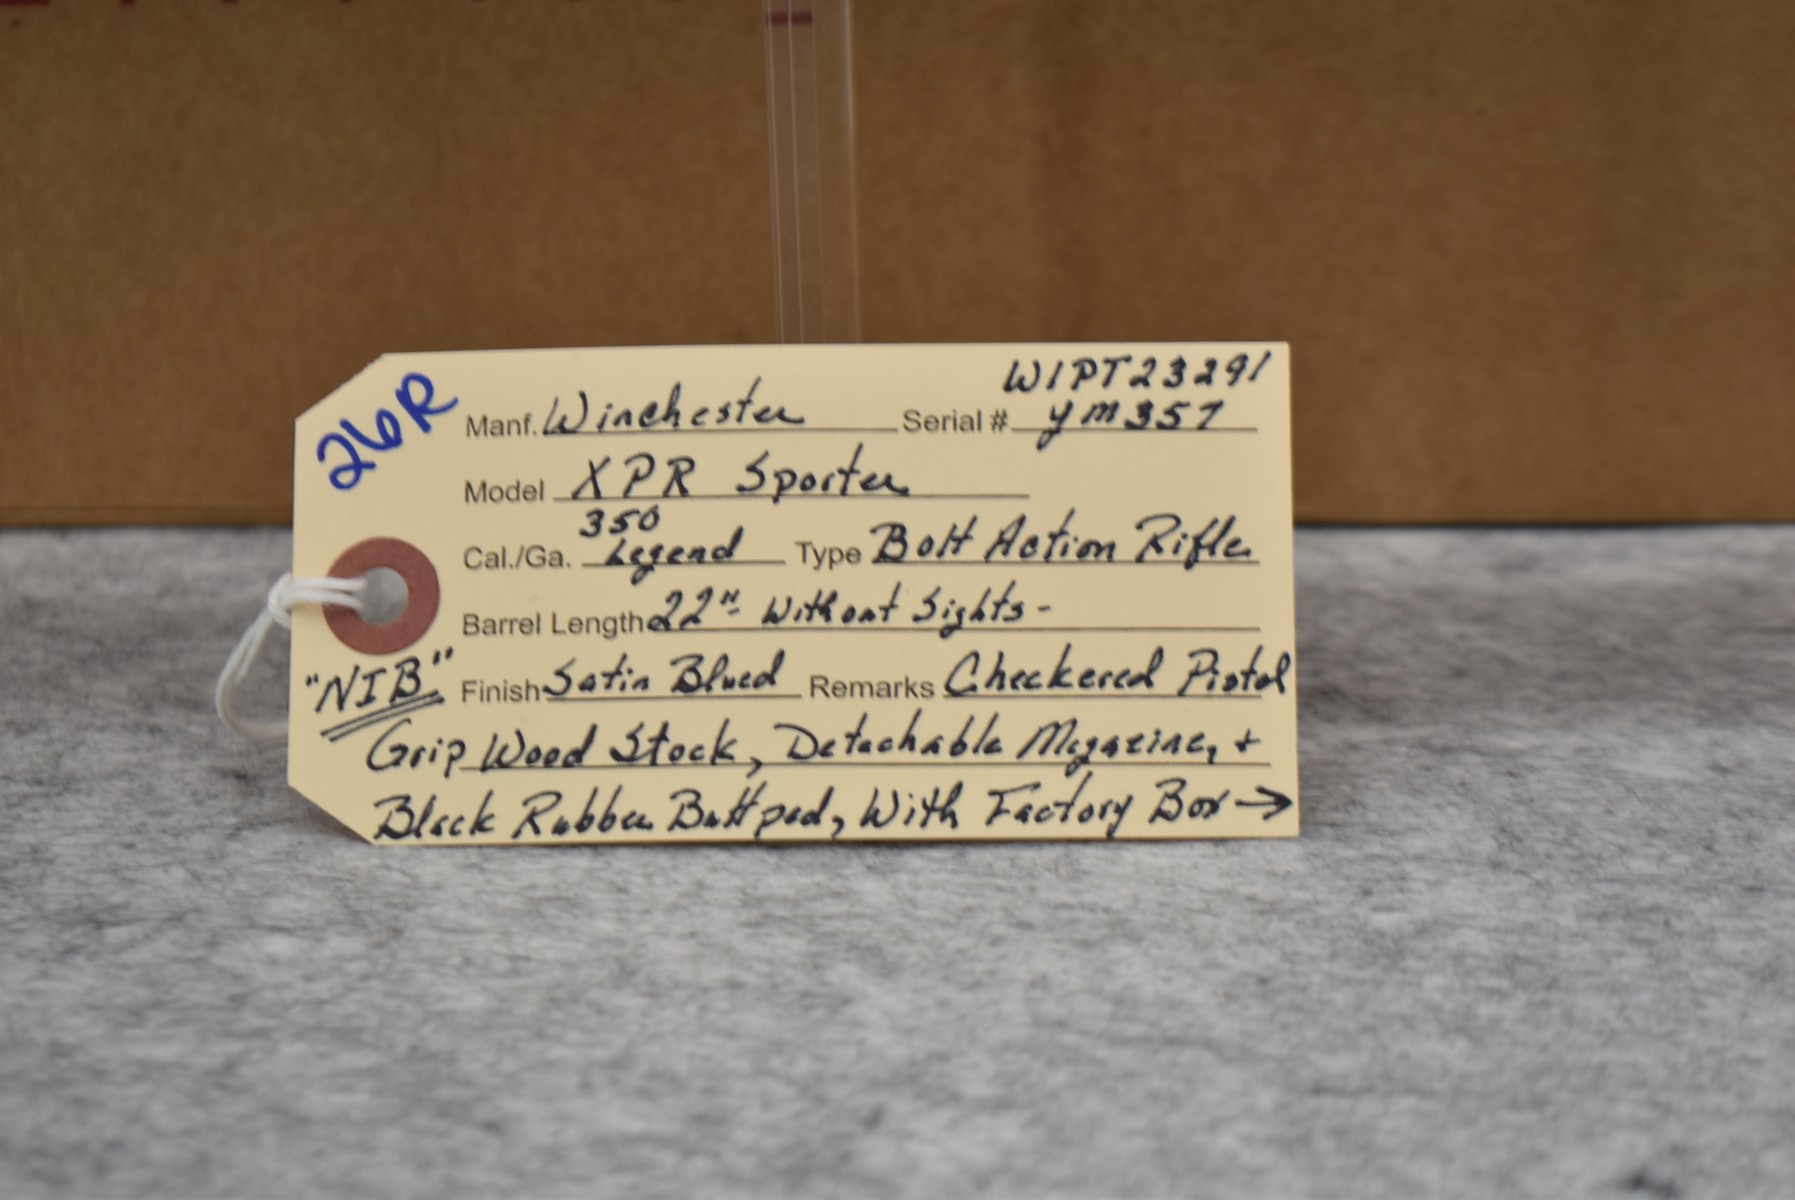 26R
WIPT23291
Manf. Winchester Serial # YM357
Model XPR Sporter
350
Cal./Ga. Legend Type Bolt Action Rifle
Barrel Length 22"- Without Sights -
"NIB" Finish Satin Blued Remarks Checkered Pistol
Grip Wood Stock, Detachable Magazine, +
Black Rubber Buttpad, With Factory Box →